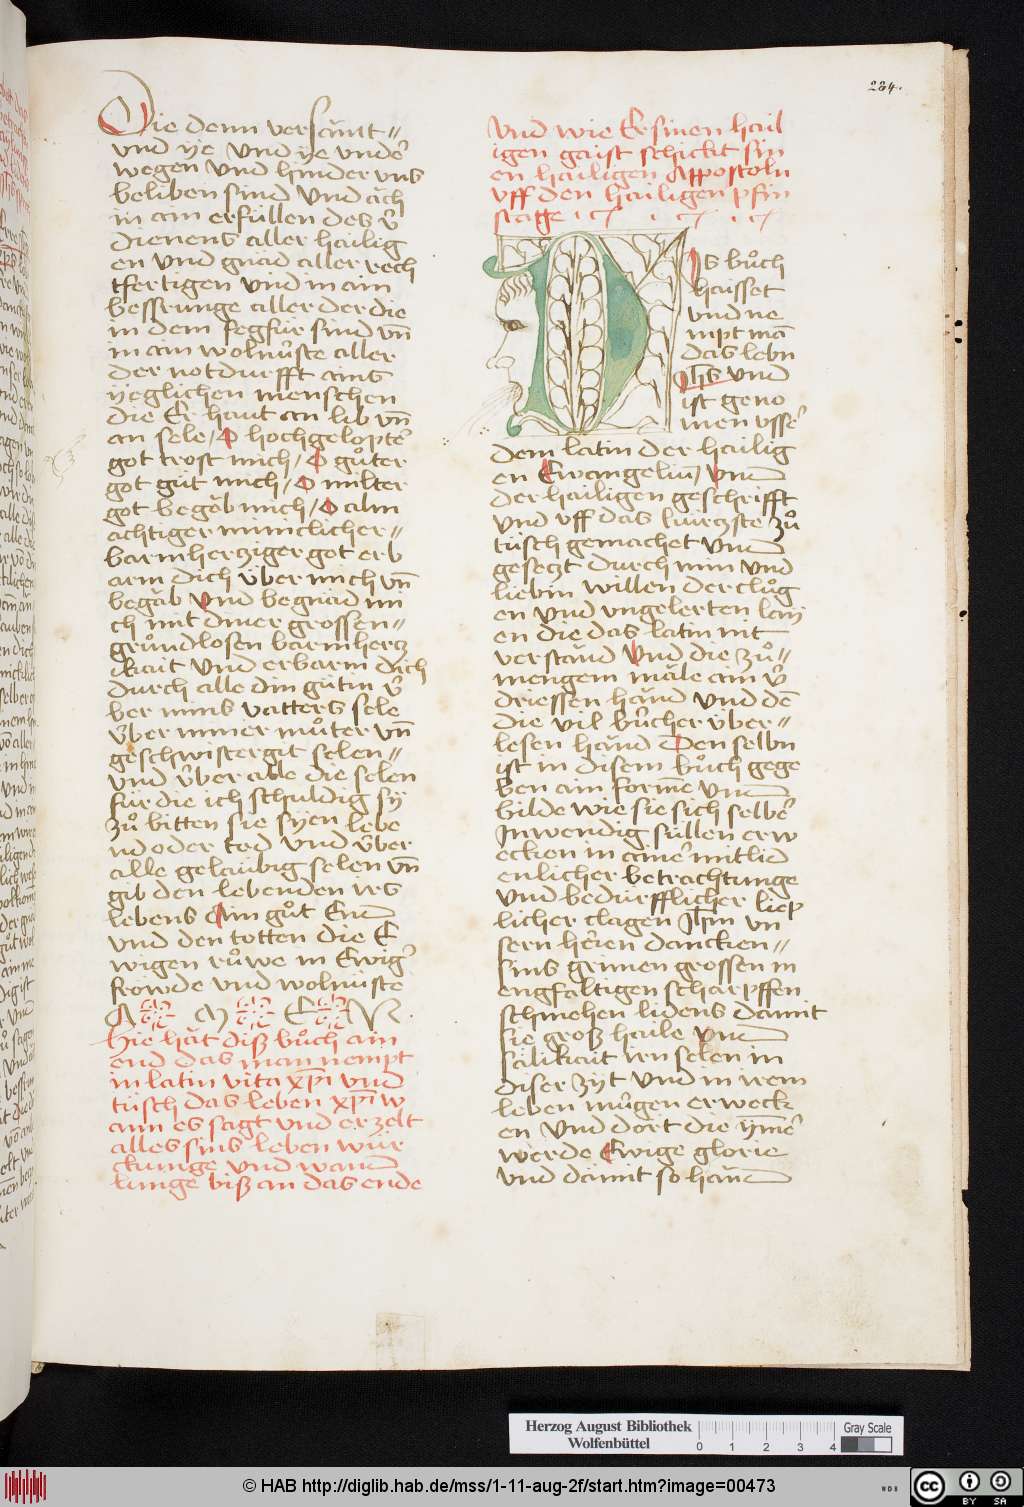 284.
Die denn versaumt=
und ye und ye undˀ
wegen und hinder uns
beliben sind und ach
in ain erfüllen des v̂
dienens aller hailig
en und gnad aller rech
tfertigen und in ain
bessrunge aller der die
in dem fegfür sind vn̄
in ain wolnůste aller
der notdurfft ains
yeglichen menschen
die Er haut an lib vn̄
an sele / O hochgelopteˀ
got trost mich / O gůter
got güt mich / O milter
got begab mich / O alm
achtiger miniclicher=
barmhercziger got erb
arm dich über mich vn̄
begăb und begnad mi
ch mit diner grossen=
grůndlosen barmhercz
ikait und erbarm dich
durch alle din gütin v̂
ber mins vatters sele
über miner můter vn̄
geschwistergit selen=
und über alle die selen
für die ich schuldig sy
zů bitten sie syen lebe
nd oder tod und über
alle gelaubig selen vn̄
gib den lebenden irs
lebens Ain gůt End
und den totten die E
wigen růwe in Ewigˀ
fröwde und wolnüste
A M E N.
Hie hăt diß bůch ain
end das man nempt
in latin vita xp̄i und
tüsch das leben xp̄i w
ann es sagt und erzelt
alles sins leben würˀ
ckunge und wand
lunge biß an das ende
und wie Er sinen hail
igen gaist schickt sin
en hailigen Appostoln
uff den hailigen pfin
stage
Dis bůch
haisset
und ne
mpt mā
das lebn
Jhs und
ist geno
men usseˀ
dem latin der hailig
en Ewangeliū / vnd
der hailigen geschrifft
und uff das kürczste zů
tüsch gemachet vnd
gesetzt durch min und
liebin willen der clůg
en und ungelerten lay
en die das latin nit
verstănd Und die zů=
mengem măle ain v̂
driessen hănd und dē
die vil bücher über=
lesen hănd Den selbn
ist in disem bůch gege
ben ain formē vnd
bilde wie sie sich selbeˀ
Inwendig süllen erw
ecken in aineˀ mitlid
enlicher betrachtunge
und bedürfftlicher liep
licher clagen Jhm un
sern heˀren dancken=
sins grimen grossen in
engfaltigen scharpffen
schmehen lidens damit
sie groß haile vnd
sălikait irn selen in
diser zyt und in irem
leben mügen erweck
en und dort die ym̄eˀ
werde Ewige glorie
und dămit so hand
Herzog August Bibliothek
Wolfenbüttel
0 1 2 3 4
Gray Scale
© HAB http://diglib.hab.de/mss/1-11-aug-2f/start.htm?image=00473
cc BY SA